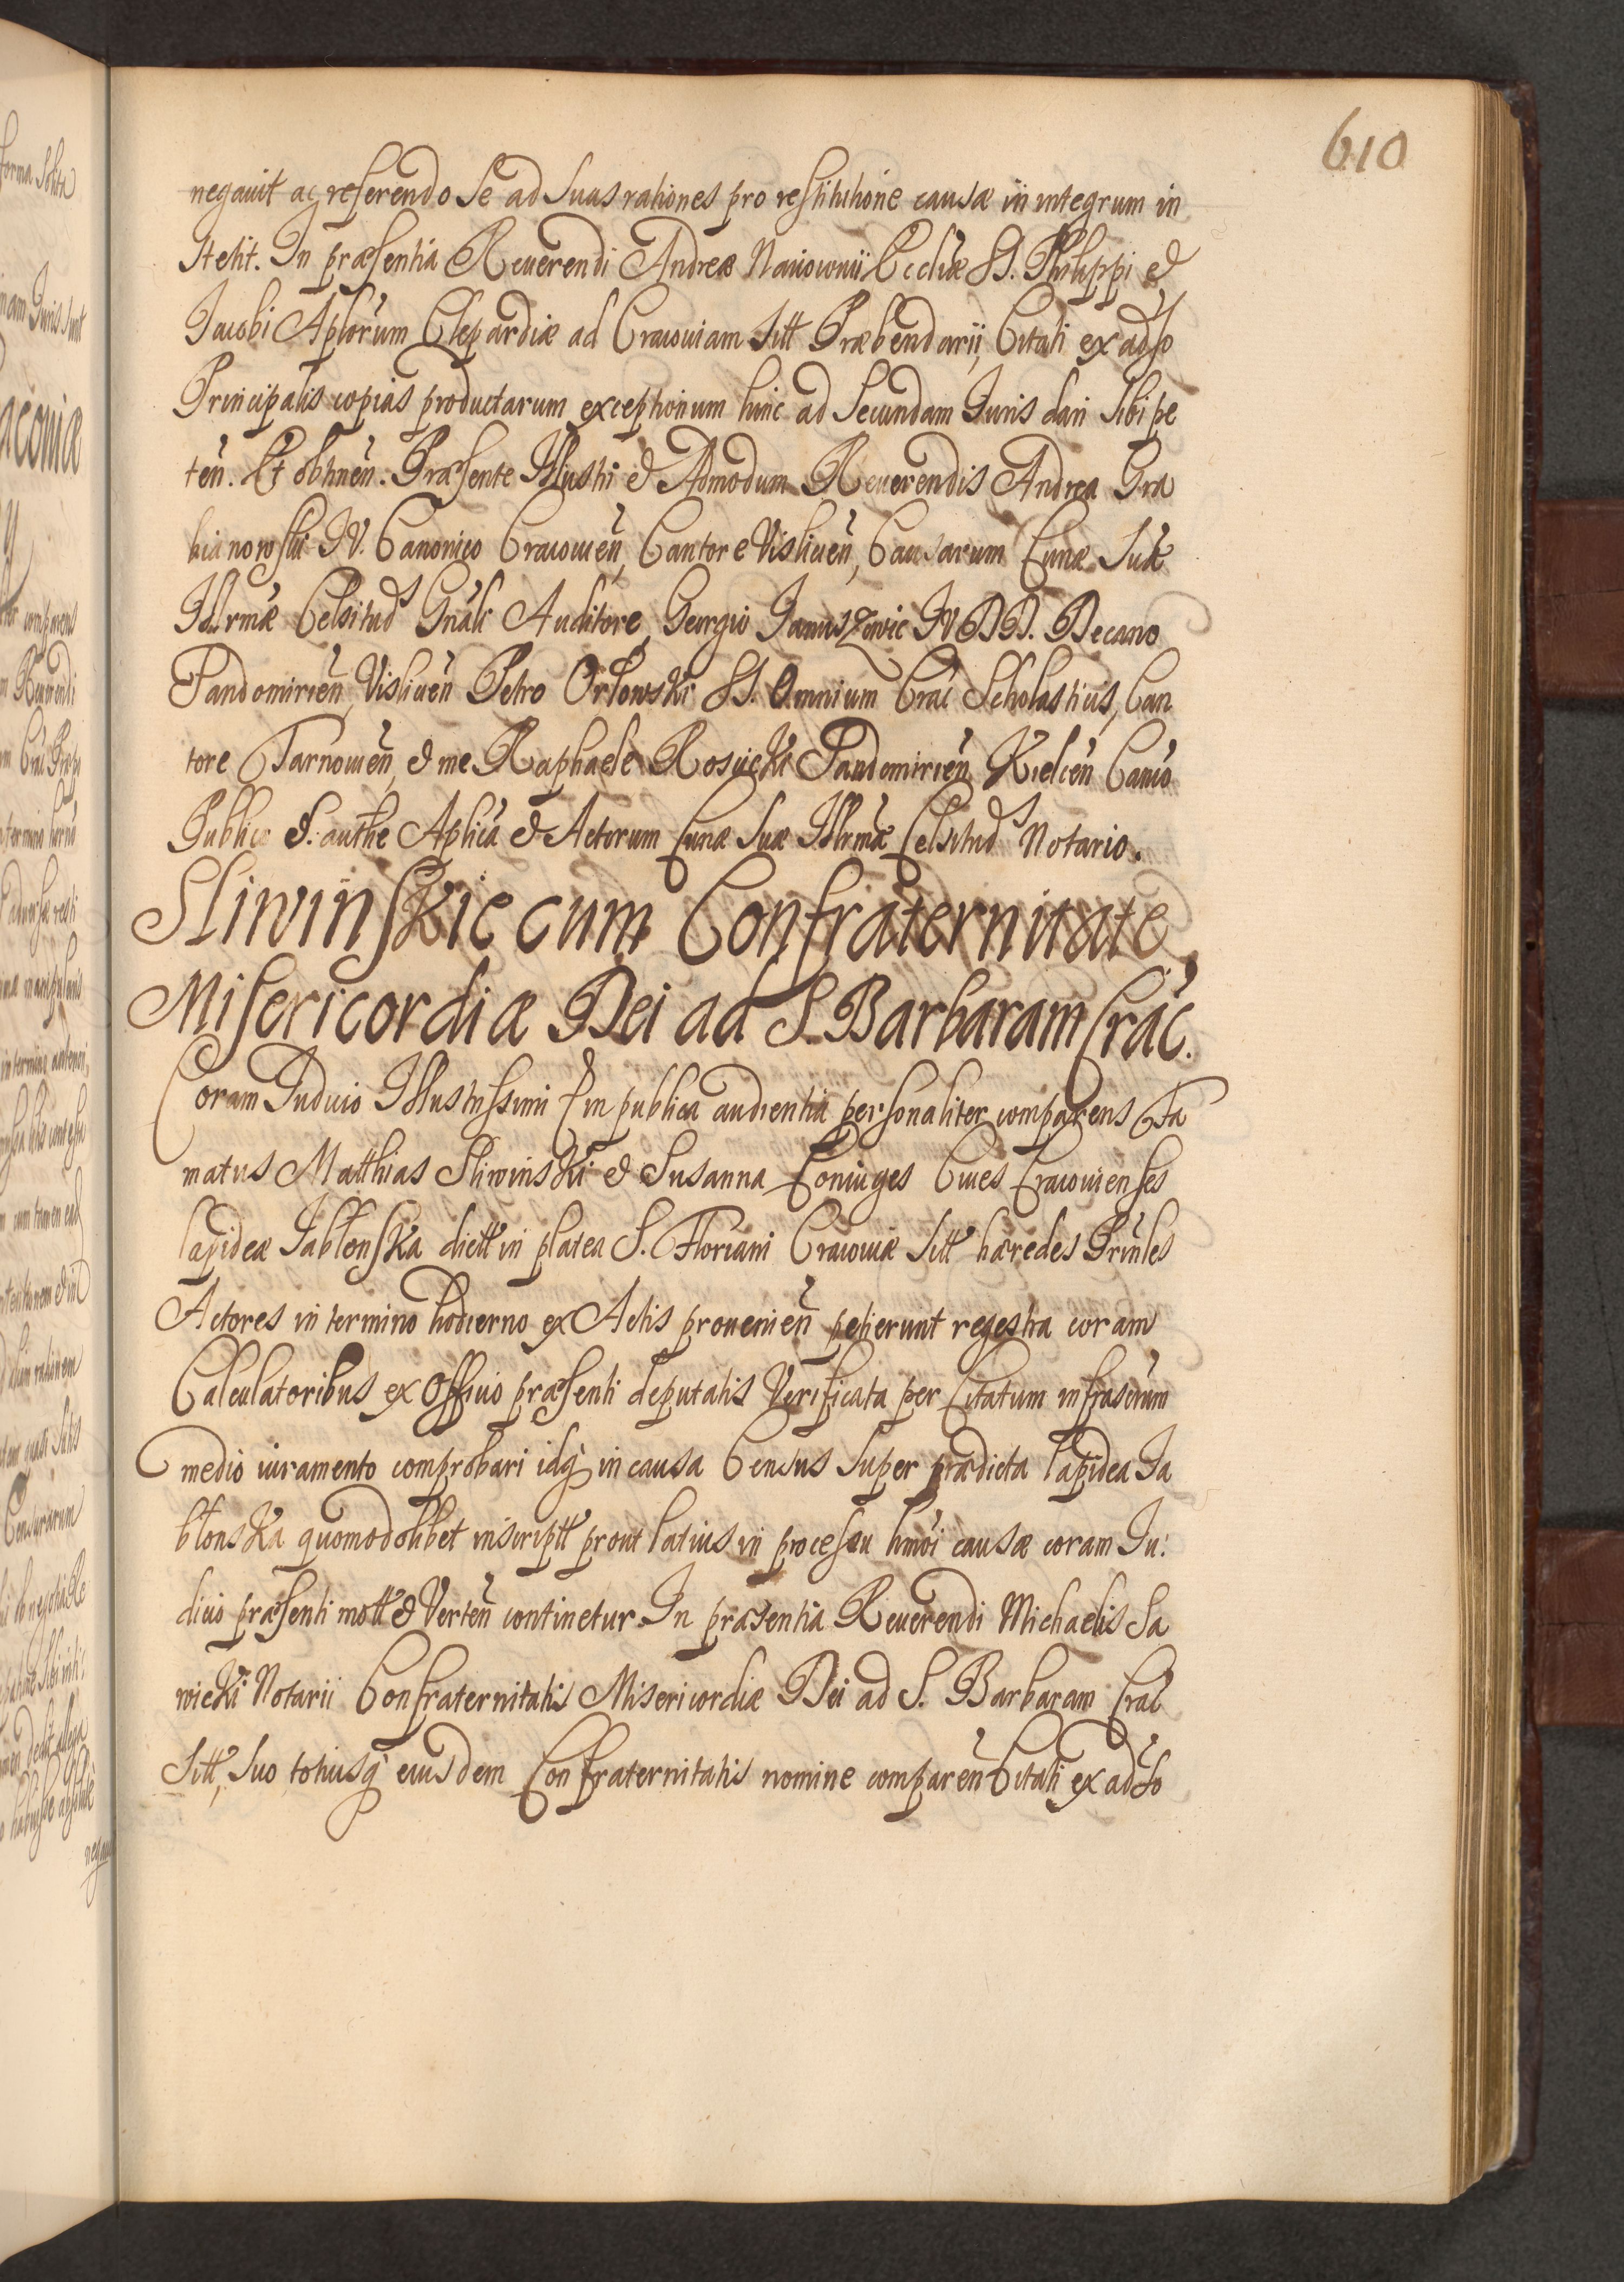 610
negavit ac referendo se ad suas rationes pro restitutione causæ in integrum in
stetit. In præsentia Reverendi Andreæ Ecclīæ SS. Philippi &
Jacobi Aplorūm Clepardiæ ad Cracoviam sitt Præbendarii, Citati ex adso
Principalis copias productarum exceptionum hinc ad secundam Juris dari sibi pe
teñ. Et obtineñ. Præsente Illustri & Admodum Reverendis Andrea Gra
bianowski JV. Canonico Cracovieñ, Cantore Vislicieñ, Causarum Curiæ Suæ
Illrmæ Celsitud Gnāli Auditore, Georgio Januszowic JVDD. Decano
Sandomirieñ, Vislicieñ Petro Orłowski SS. Omnium Crac Scholasticus, Can
tore Tarnovieñ, & me Raphaele Rosicki Sandomirieñ Kielceñ Canco
Publico S. authe Aplica & Actorum Curiæ suæ Illrmæ Celsitud Notario.
Sliwinskie cum Confraternitate
Misericordiæ Dei ad S. Barbaram Crac.
Coram Judicio Illustrissimi & in publica audientia personaliter comparens Fa
matus Matthias Sliwinski & Susanna Coniuges Cives Cracovienses
lapideæ Jabłonska dictt in platea S. Floriani Cracoviæ sitt hæredes Prinles
Actores in termino hodierno ex Actis provenieñ petierunt regestra coram
Calculatoribus ex Officio præsenti deputatis Verificata per Citatum infrascrum
medio iuramento comprobari idq in causa Census super prædicta lapidea Ja
błonska quomodolibet inscriptt prout latius in processu hmoi causæ coram Ju:
dicio præsenti mott & Verteñ continetur. In præsentia Reverendi Michaelis Sa
wicki Notarii Confraternitatis Misericordiæ Dei ad S. Barbaram Crac
sitt, suo totiusq eiusdem Confraternitatis nomine compareñ Citati ex adso